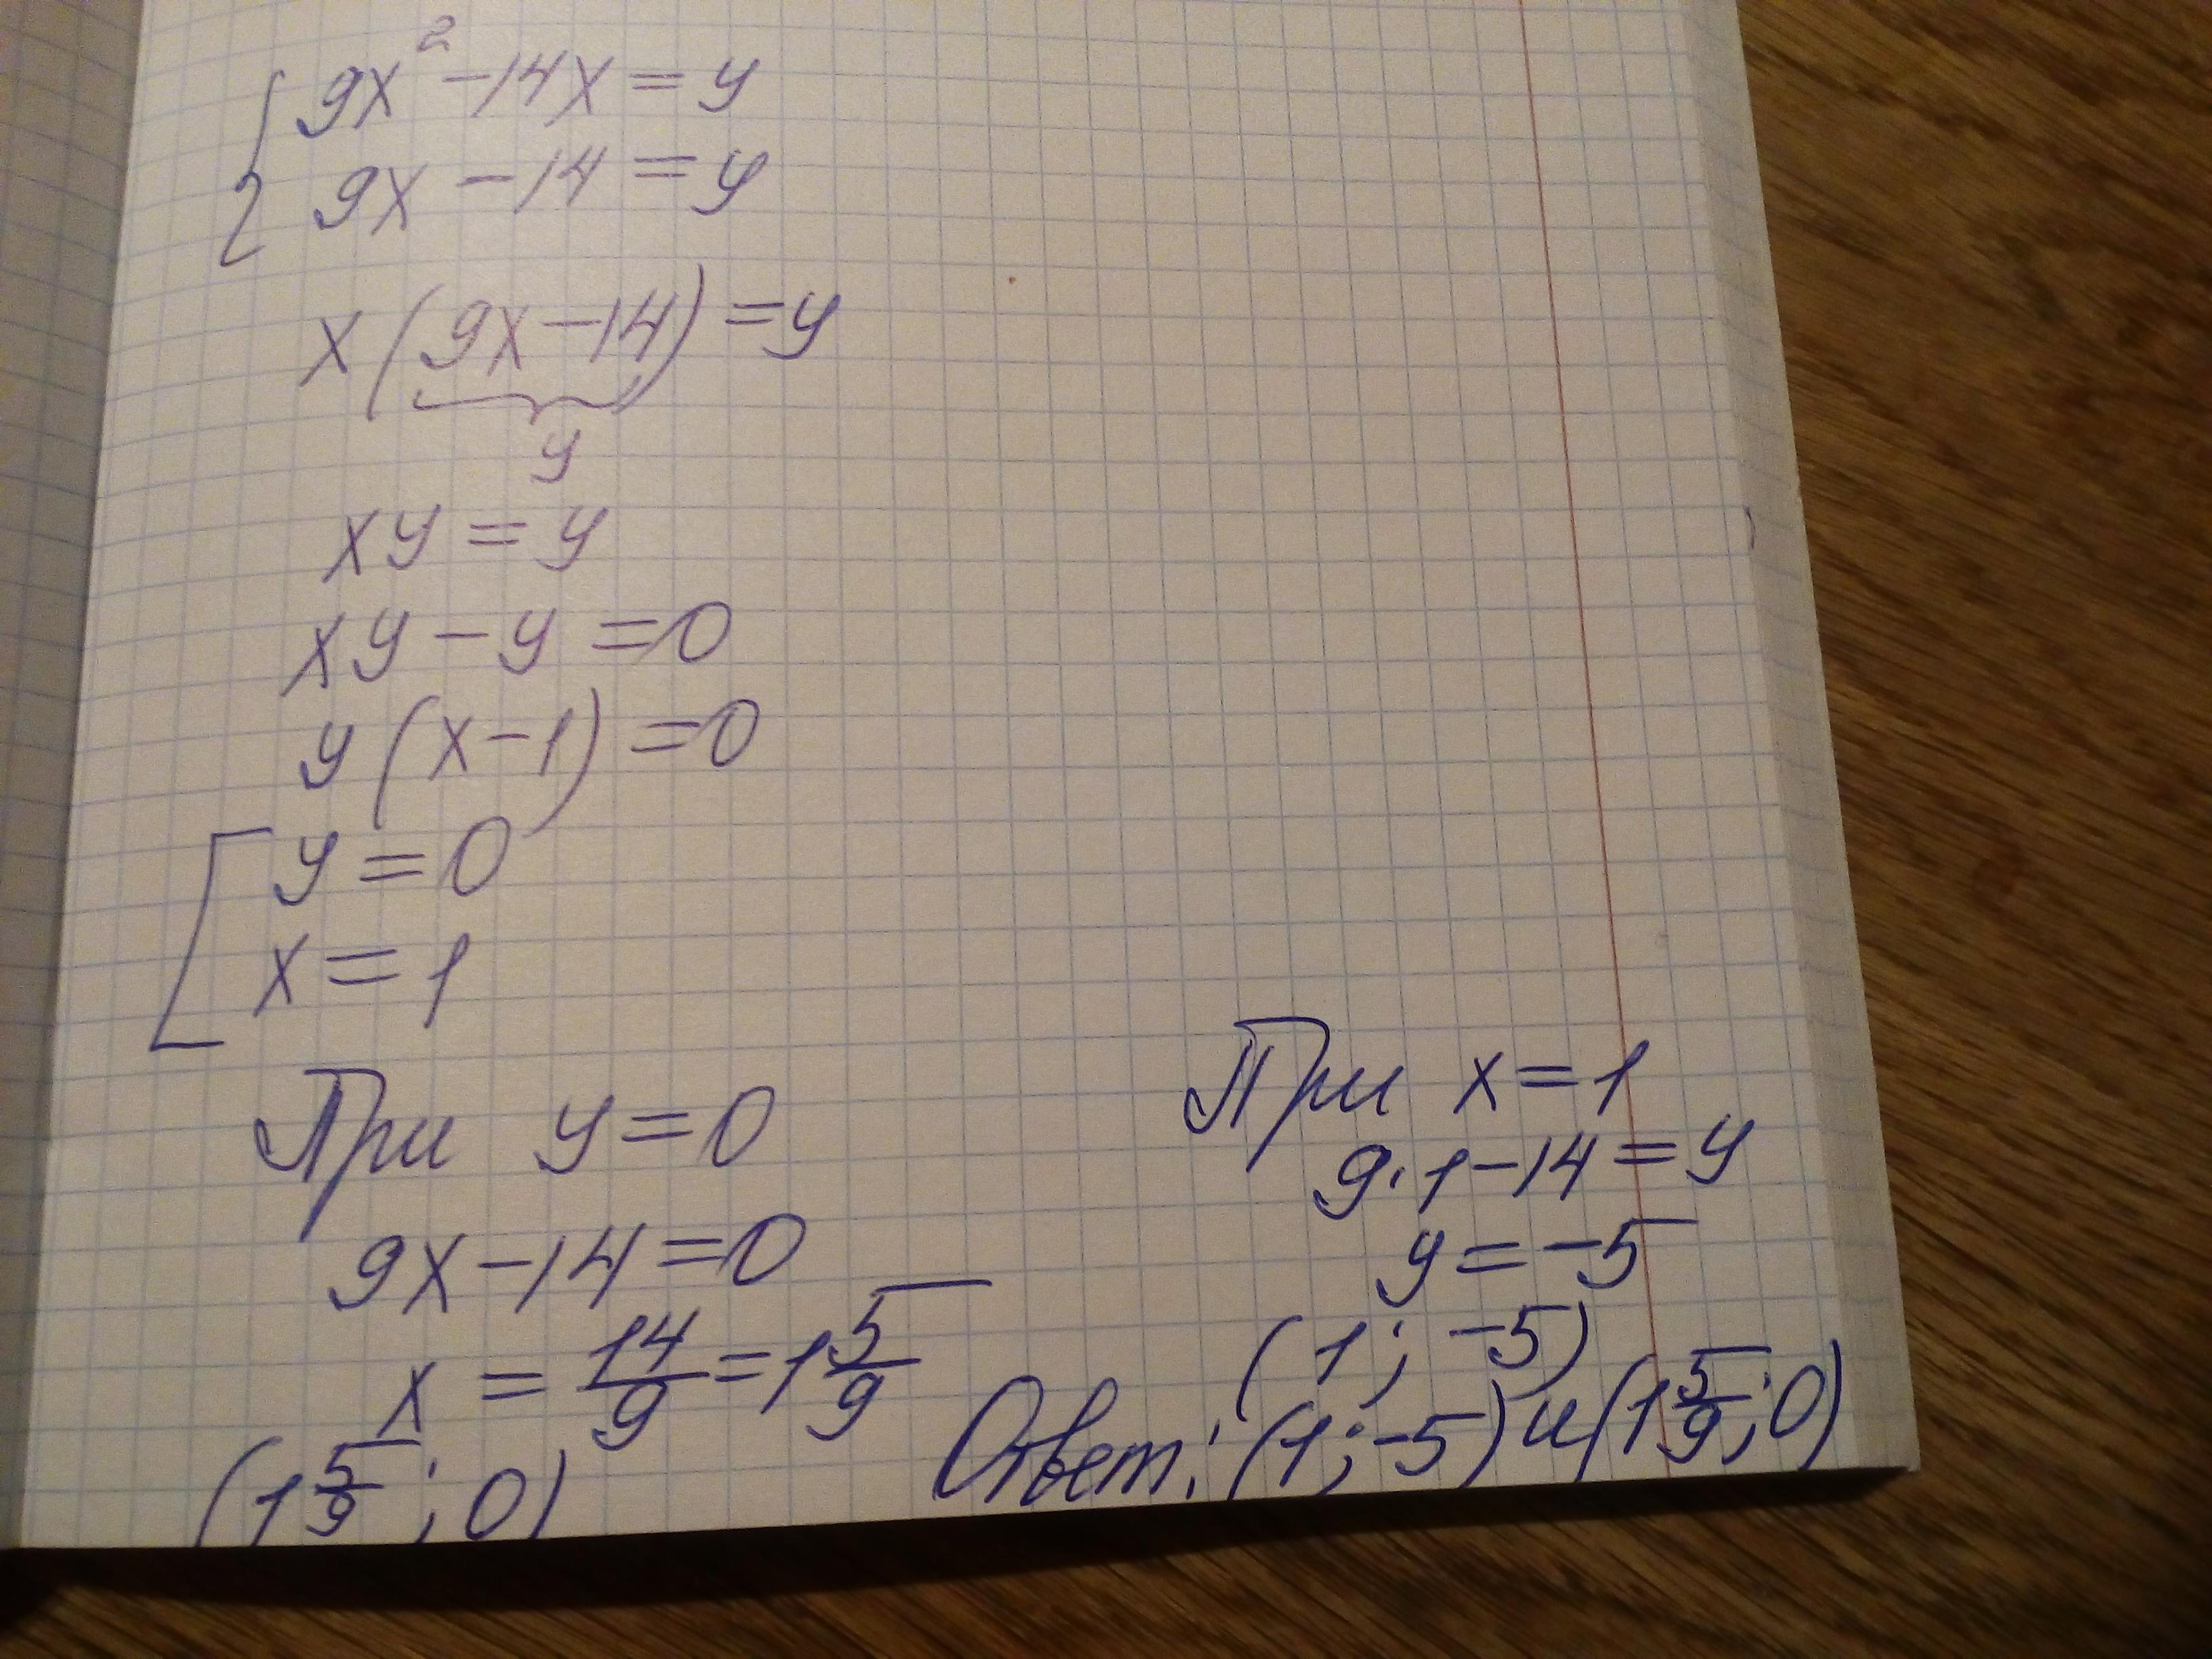 { 9x² - 14x = y
9x - 14 = y
x(9x - 14) = y
y
xy = y
xy - y = 0
y(x - 1) = 0
[ y = 0
x = 1
При y = 0
9x - 14 = 0
x = 14/9 = 1 5/9
(1 5/9; 0)
При x = 1
9·1 - 14 = y
y = -5
(1; -5)
Ответ: (1; -5) и (1 5/9; 0)